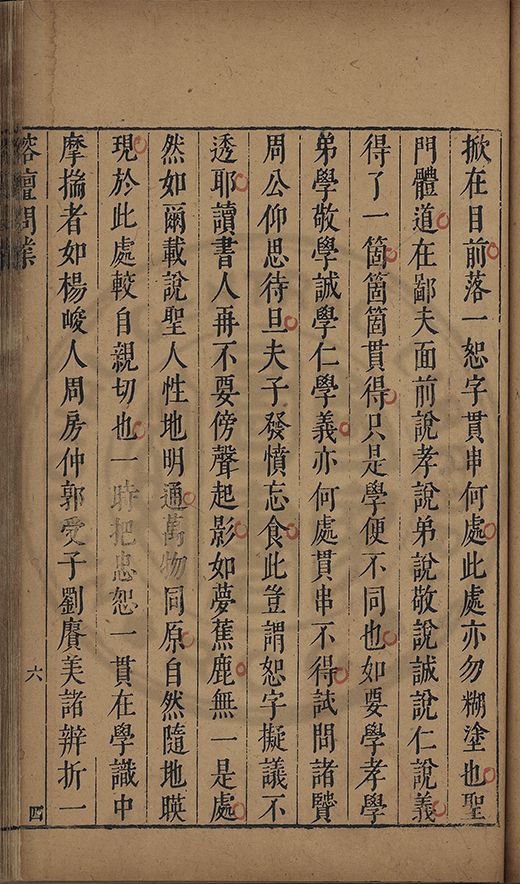 掀在目前落一恕字貫串何處此處亦勿糊塗也聖
門體道在鄙夫面前說孝說弟說敬說誠說仁說義
得了一箇箇箇貫得只是學便不同也如要學孝學
弟學敬學誠學仁學義亦何處貫串不得試問諸賢
周公仰思待旦夫子發憤忘食此豈謂恕字擬議不
透耶讀書人再不要傍聲起影如夢蕉鹿無一是處
然如爾載說聖人性地明通萬物同原自然隨地暎
現於此處較自親切也一時把忠恕一貫在學識中
摩揣者如楊峻人周房仲郭受子劉賡美諸辨折一
榕壇問業
六
四